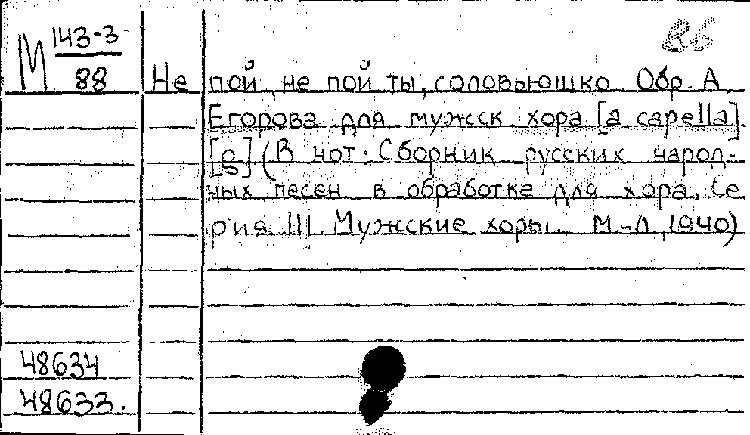 М 143-3
88
Не пой, не пой ты, соловьюшко Обр. А
Егорова для мужск хора [a capella].
[g] (В нот: Сборник русских народ-
ных песен в обработке для хора. Се
рия III Мужские хоры. М-Л, 1940)
48634
48633.